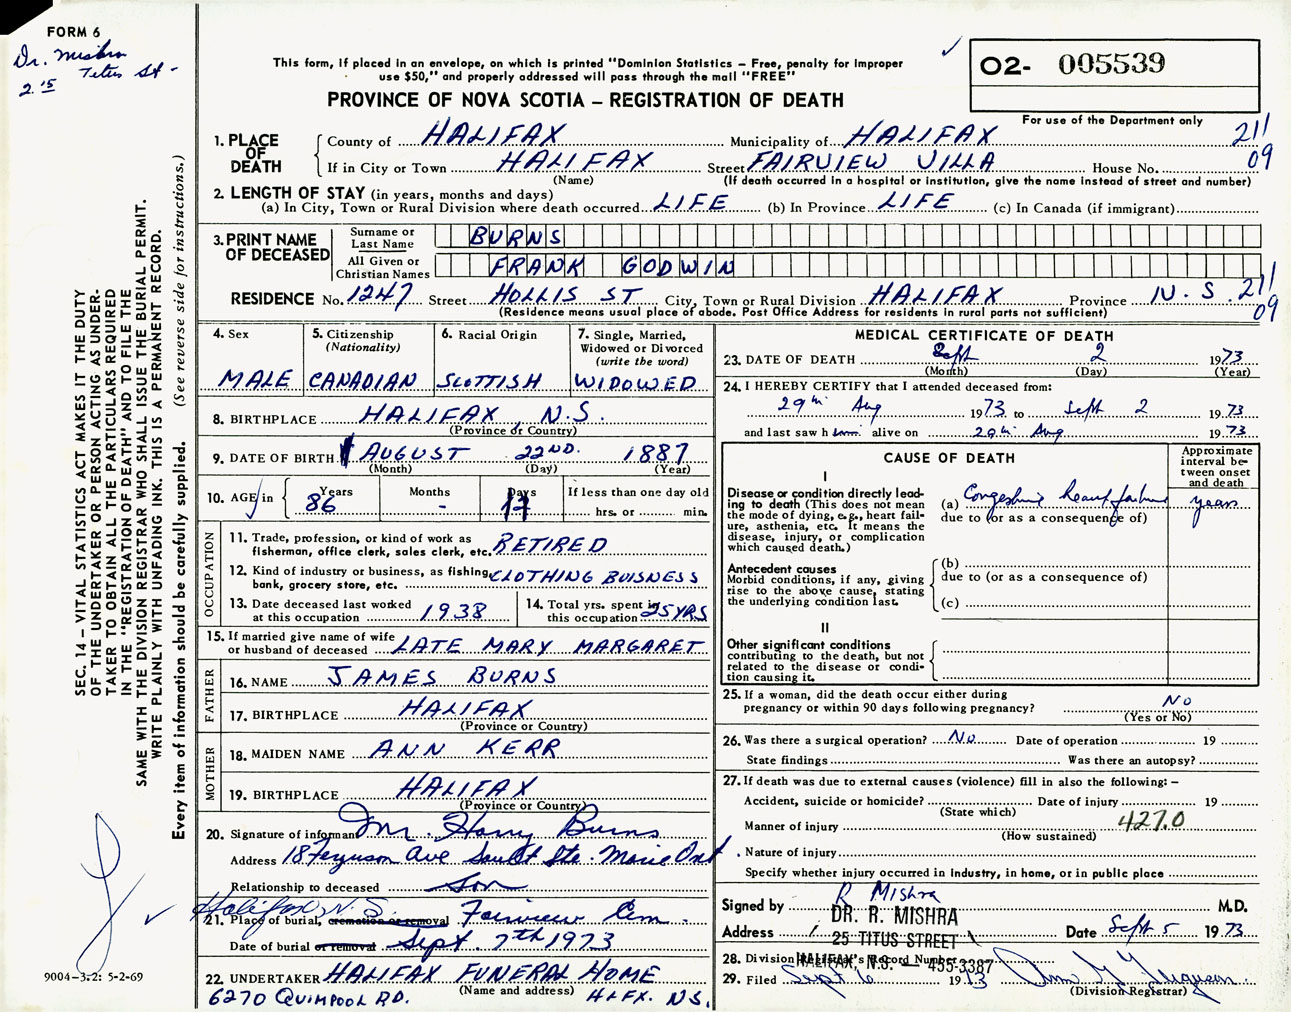 FORM 6
Dr. Mishra
Titus St -
2.15
This form, if placed in an envelope, on which is printed "Dominion Statistics – Free, penalty for improper
use $50," and properly addressed will pass through the mail "FREE"
PROVINCE OF NOVA SCOTIA – REGISTRATION OF DEATH
02- 005539
For use of the Department only
211
09
1. PLACE OF DEATH
County of HALIFAX Municipality of HALIFAX
If in City or Town HALIFAX Street FAIRVIEW VILLA House No.
(Name) (If death occurred in a hospital or institution, give the name instead of street and number)
2. LENGTH OF STAY (in years, months and days)
(a) In City, Town or Rural Division where death occurred LIFE (b) In Province LIFE (c) In Canada (if immigrant)
3. PRINT NAME OF DECEASED
Surname or Last Name BURNS
All Given or Christian Names FRANK GODWIN
RESIDENCE No. 1247 Street HOLLIS ST City, Town or Rural Division HALIFAX Province N.S. 211
09
(Residence means usual place of abode. Post Office Address for residents in rural parts not sufficient)
4. Sex
MALE
5. Citizenship (Nationality)
CANADIAN
6. Racial Origin
SCOTTISH
7. Single, Married, Widowed or Divorced (write the word)
WIDOWED
8. BIRTHPLACE HALIFAX N.S.
(Province or Country)
9. DATE OF BIRTH AUGUST 22ND. 1887
(Month) (Day) (Year)
10. AGE in Years 86 Months - Days If less than one day old
hrs. or min.
OCCUPATION
11. Trade, profession, or kind of work as
fisherman, office clerk, sales clerk, etc. RETIRED
12. Kind of industry or business, as fishing,
bank, grocery store, etc. CLOTHING BUISNESS
13. Date deceased last worked
at this occupation 1938
14. Total yrs. spent in
this occupation 25 YRS
15. If married give name of wife
or husband of deceased LATE MARY MARGARET
FATHER
16. NAME JAMES BURNS
17. BIRTHPLACE HALIFAX
(Province or Country)
MOTHER
18. MAIDEN NAME ANN KERR
19. BIRTHPLACE HALIFAX
(Province or Country)
20. Signature of informant Mr. Harry Burns
Address 18 Ferguson Ave Sault Ste. Marie Ont
Relationship to deceased son
Halifax, N.S.
21. Place of burial, cremation or removal Fairview Cem.
Date of burial or removal Sept. 7th 1973
22. UNDERTAKER HALIFAX FUNERAL HOME
(Name and address)
6270 QUINPOOL RD. HLFX. N.S.
MEDICAL CERTIFICATE OF DEATH
23. DATE OF DEATH Sept 2 1973
(Month) (Day) (Year)
24. I HEREBY CERTIFY that I attended deceased from:
29th Aug 1973 to Sept 2 1973
and last saw him alive on 29th Aug 1973
CAUSE OF DEATH
Approximate interval between onset and death
I
Disease or condition directly lead-
ing to death (This does not mean
the mode of dying, e.g., heart fail-
ure, asthenia, etc. It means the
disease, injury, or complication
which caused death.)
(a) Congestive heart failure years
due to (or as a consequence of)
Antecedent causes
Morbid conditions, if any, giving
rise to the above cause, stating
the underlying condition last.
(b)
due to (or as a consequence of)
(c)
II
Other significant conditions
contributing to the death, but not
related to the disease or condi-
tion causing it.
25. If a woman, did the death occur either during
pregnancy or within 90 days following pregnancy? No
(Yes or No)
26. Was there a surgical operation? No Date of operation 19
State findings Was there an autopsy?
27. If death was due to external causes (violence) fill in also the following: –
Accident, suicide or homicide? Date of injury 19
(State which)
Manner of injury 427.0
(How sustained)
Nature of injury
Specify whether injury occurred in industry, in home, or in public place
Signed by R Mishra M.D.
DR. R. MISHRA
Address 25 TITUS STREET Date Sept 5 1973
28. Division Registrar's Record Number
HALIFAX, N.S. — 455-3387
29. Filed Sept 6 1973
(Division Registrar)
SEC. 14 – VITAL STATISTICS ACT MAKES IT THE DUTY
OF THE UNDERTAKER OR PERSON ACTING AS UNDER-
TAKER TO OBTAIN ALL THE PARTICULARS REQUIRED
IN THE "REGISTRATION OF DEATH" AND TO FILE THE
SAME WITH THE DIVISION REGISTRAR WHO SHALL ISSUE THE BURIAL PERMIT.
WRITE PLAINLY WITH UNFADING INK. THIS IS A PERMANENT RECORD.
Every item of information should be carefully supplied. (See reverse side for instructions.)
9004–3.2: 5-2-69